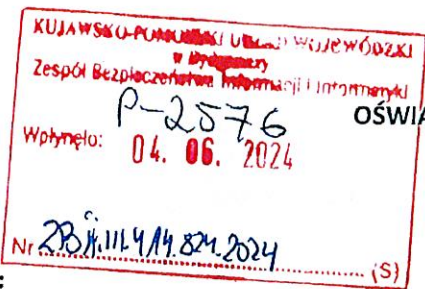 KUJAWSKO-POMORSKI URZĄD WOJEWÓDZKI
w Bydgoszczy
Zespół Bezpieczeństwa Informacji i Informatyki
P-2576
OŚWIA
Wpłynęło: 04. 06. 2024
Nr (S)